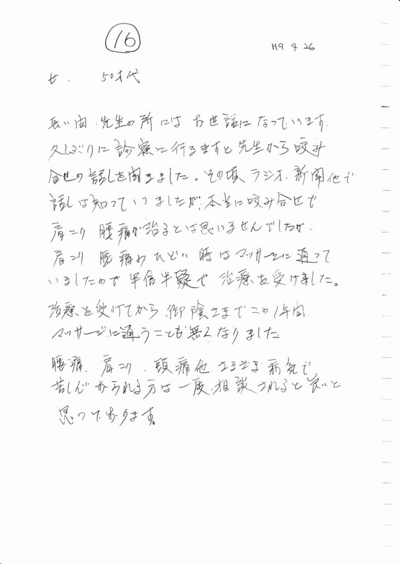 16
H9 4 26
女. 50才代
長い間、先生の所にはお世話になっています。
久しぶりに診療に行きますと先生から咬み
合せの話しを聞きました。その頃、ラジオ、新聞他で
話しは知っていましたが、本当に咬み合せで
肩こり 腰痛が治るとは思いませんでしたが、
肩こり 腰痛のひどい時はマッサージに通って
いましたので半信半疑で治療を受けました。
治療を受けてから、御陰さまでこの1年間
マッサージに通うことも無くなりました
腰痛、肩こり、頭痛他 さまざま病気で
苦しんでおられる方は一度、相談されると良いと
思っております。